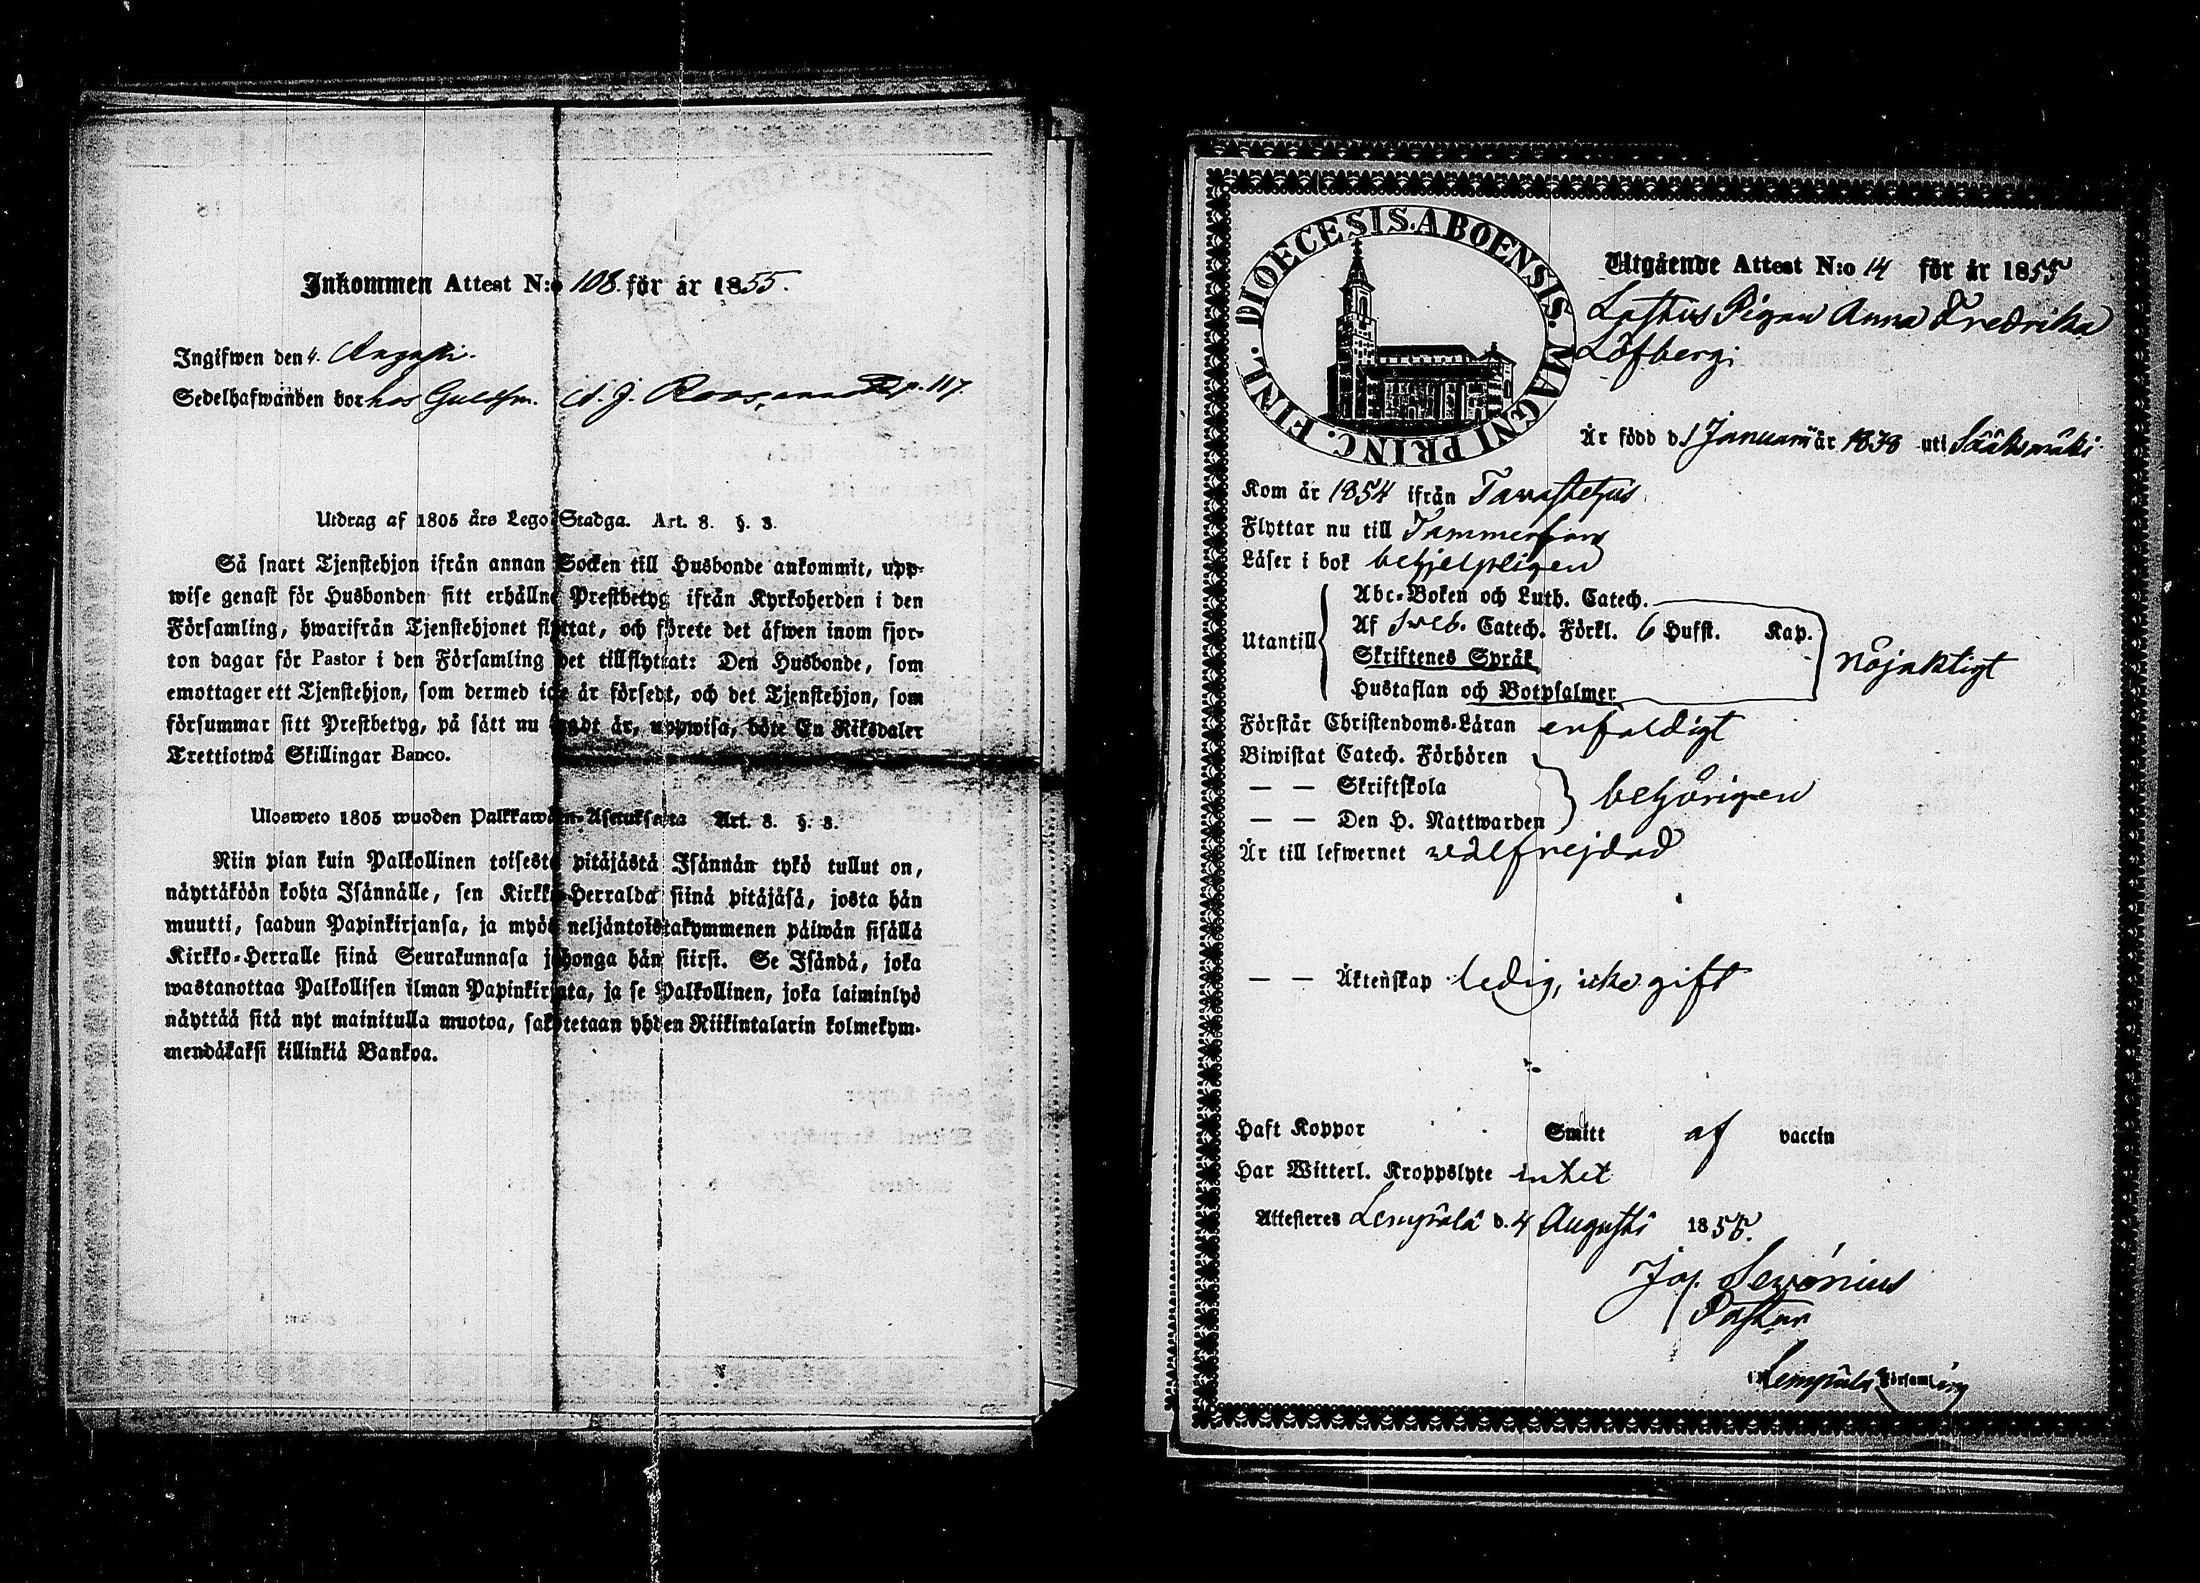 Inkommen Attest N:o 108. för år 1855.
Ingifwen den 4. Augusti.
Sedelhafwanden bor hos Guldsm. J. Roos p. 117.
Utdrag af 1805 års Lego-Stadga. Art. 8. §. 3.
Så snart Tjenstehjon ifrån annan Socken till Husbonde ankommit, upp-
wise genast för Husbonden sitt erhållne Prestbetyg ifrån Kyrkoherden i den
Församling, hwarifrån Tjenstehjonet flyttat, och förete det äfwen inom fjor-
ton dagar för Pastor i den Församling det tillflyttat: Den Husbonde, som
emottager ett Tjenstehjon, som dermed icke är försedt, och det Tjenstehjon, som
försummar sitt Prestbetyg, på sätt nu sagdt är, uppwisa, böte En Riksdaler
Trettiotwå Skillingar Banco.
Ulosweto 1805 wuoden Palkkawäen-Asetuksesta Art. 8. §. 3.
Niin pian kuin Palkollinen toisesta pitäjästä Isännän tykö tullut on,
näyttäköön kohta Isännälle, sen Kirkko-Herralda siinä pitäjäsä, josta hän
muutti, saadun Papinkirjansa, ja myös neljäntoistakymmenen päiwän sisällä
Kirkko-Herralle siinä Seurakunnasa johonga hän siirsi. Se Isändä, joka
wastanottaa Palkollisen ilman Papinkirjata, ja se Palkollinen, joka laiminlyö
näyttää sitä nyt mainitulla muotoa, sakotetaan yhden Riikintalarin kolmekym-
mendäkaksi killinkiä Bankoa.
DIOECESIS. ABOENSIS. MAGNI PRINC. FINL.
Utgående Attest N:o 14 för år 1855
Pigan Anna Fredrika
Löfberg.
Är född d. 1 Januarii år 1838 uti Sääksmäki
Kom år 1854 ifrån Tavastehus
Flyttar nu till Tammerfors
Läser i bok behjelpligen
Utantill
Abc-Boken och Luth. Catech.
Af Sveb. Catech. Förkl. 6 Hufst. Kap.
Skriftenes Språk
Hustaflan och Botpsalmer
nöjaktigt
Förstår Christendoms-Läran enfaldigt
Biwistat Catech. Förhören
— — Skriftskola
— — Den H. Nattwarden
behörigen
Är till lefwernet wälfrejdad
— — Äktenskap ledig, icke gift
Haft Koppor Smitt af vaccin
Har Witterl. Kroppslyte intet
Attesteres Lempälä d. 4 Augusti 1855.
Jos. Sevonius
Pastor
i Lempälä Församling